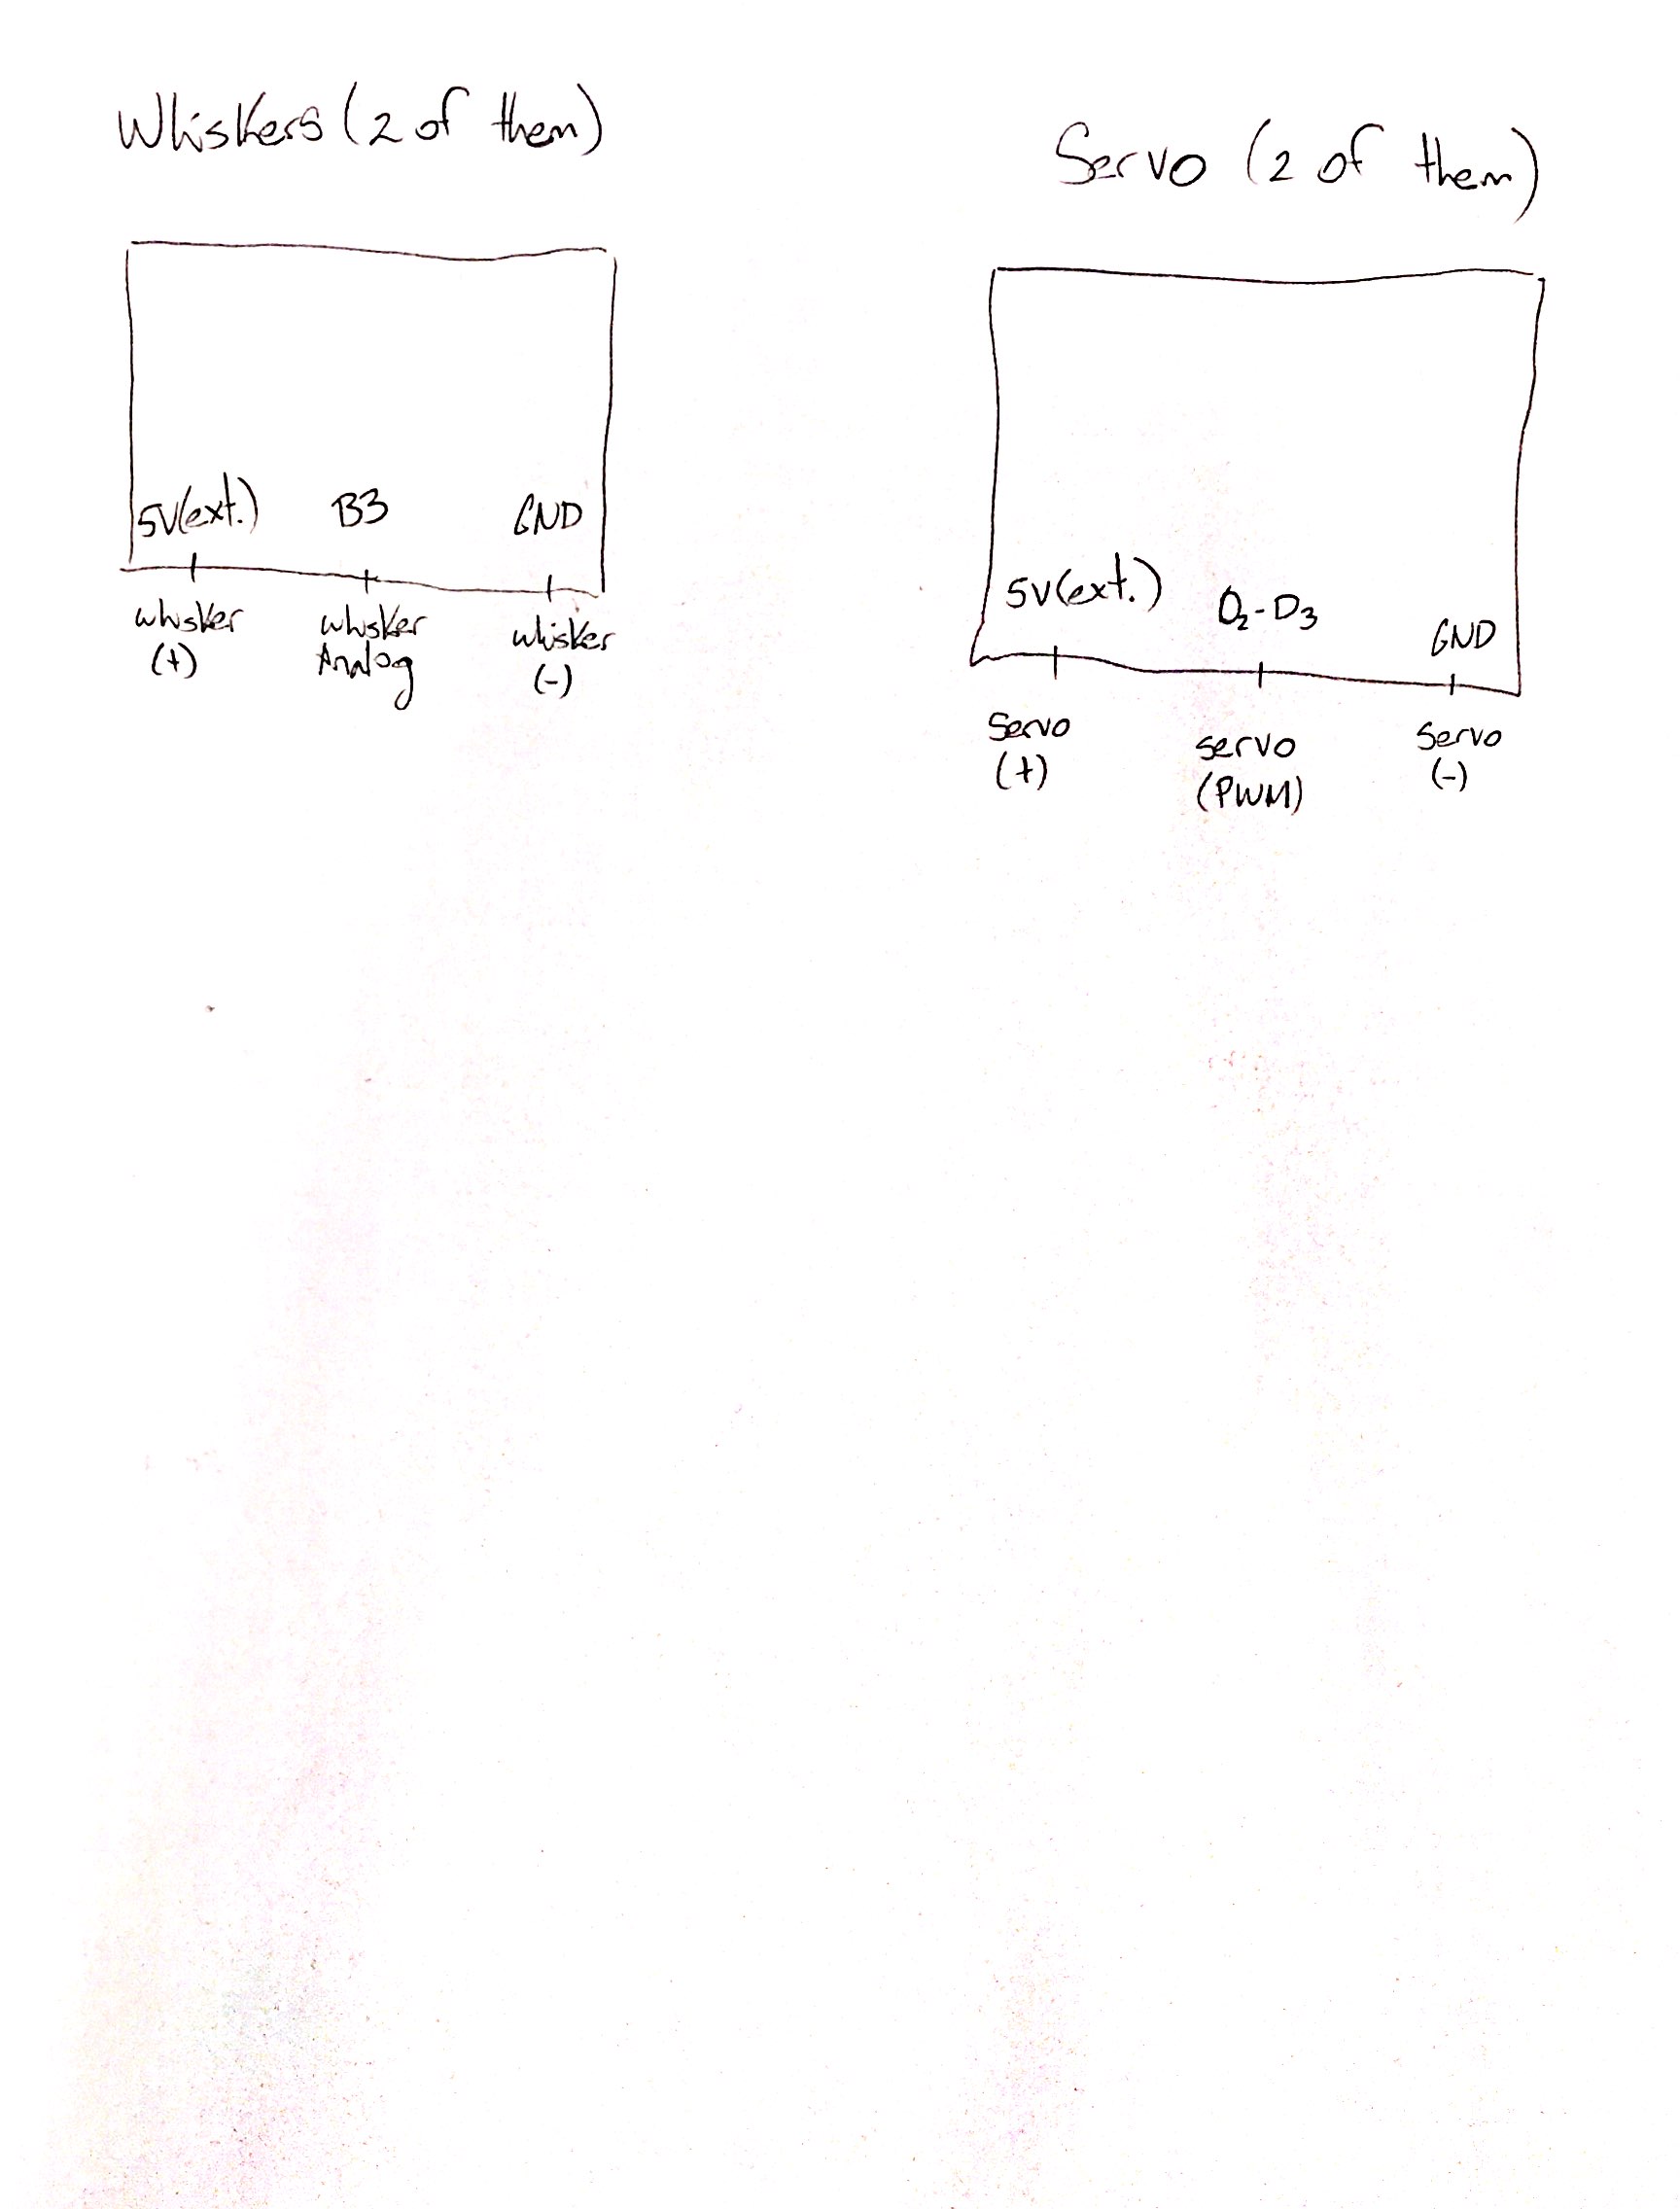 Whiskers (2 of them)
5V(ext.) B3 GND
whisker (+)
whisker Analog
whisker (-)
Servo (2 of them)
5V(ext.) D2-D3 GND
Servo (+)
servo (PWM)
Servo (-)